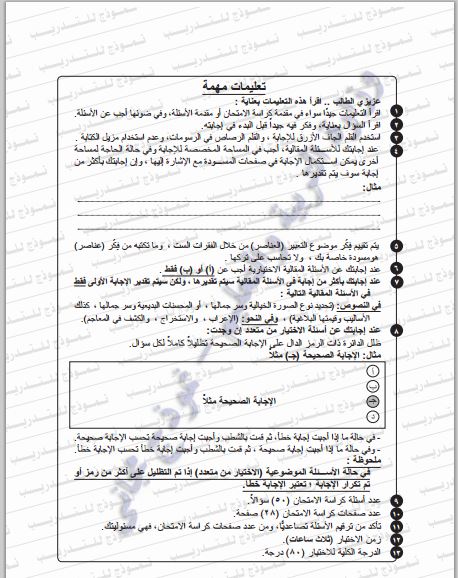 تعليمات مهمة
عزيزي الطالب .. اقرأ هذه التعليمات بعناية :
١ اقرأ التعليمات جيدًا سواء في مقدمة كراسة الامتحان أو مقدمة الأسئلة، وفي ضوئها أجب عن الأسئلة.
٢ اقرأ السؤال بعناية، وفكر فيه جيدًا قبل البدء في إجابته.
٣ استخدم القلم الجاف الأزرق للإجابة ، والقلم الرصاص في الرسومات، وعدم استخدام مزيل الكتابة .
٤ عند إجابتك للأسئلة المقالية، أجب في المساحة المخصصة للإجابة وفي حالة الحاجة لمساحة
أخرى يمكن استكمال الإجابة في صفحات المسودة مع الإشارة إليها ، وإن إجابتك بأكثر من
إجابة سوف يتم تقديرها .
مثال:
٥ يتم تقييم فِكَر موضوع التعبير (العناصر) من خلال الفقرات الست ، وما تكتبه من فِكَر (عناصر)
هو مسودة خاصة بك ، ولا تحاسب على تركها .
٦ عند إجابتك عن الأسئلة المقالية الاختيارية أجب عن (أ) أو (ب) فقط .
٧ عند إجابتك بأكثر من إجابة في الأسئلة المقالية سيتم تقديرها ، ولكن سيتم تقدير الإجابة الأولى فقط
في الأسئلة المقالية التالية :
في النصوص: (تحديد نوع الصورة الخيالية وسر جمالها ، أو المحسنات البديعية وسر جمالها ، كذلك
الأساليب وقيمتها البلاغية) ، وفي النحو: (الإعراب ، والاستخراج ، والكشف في المعاجم).
٨ عند إجابتك عن أسئلة الاختيار من متعدد إن وجدت:
ظلل الدائرة ذات الرمز الدال على الإجابة الصحيحة تظليلاً كاملاً لكل سؤال.
مثال: الإجابة الصحيحة (جـ) مثلاً
أ
ب
جـ الإجابة الصحيحة مثلاً
د
- في حالة ما إذا أجبت إجابة خطأ، ثم قمت بالشطب وأجبت إجابة صحيحة تحسب الإجابة صحيحة.
- وفي حالة ما إذا أجبت إجابة صحيحة ، ثم قمت بالشطب وأجبت إجابة خطأ تحسب الإجابة خطأ.
ملحوظة :
في حالة الأسئلة الموضوعية (الاختيار من متعدد) إذا تم التظليل على أكثر من رمز أو
تم تكرار الإجابة ؛ تعتبر الإجابة خطأ.
٩ عدد أسئلة كراسة الامتحان (٥٠) سؤالاً.
١٠ عدد صفحات كراسة الامتحان (٢٨) صفحة.
١١ تأكد من ترقيم الأسئلة تصاعديًا، ومن عدد صفحات كراسة الامتحان، فهي مسئوليتك.
١٢ زمن الاختبار (ثلاث ساعات).
١٣ الدرجة الكلية للاختبار (٨٠) درجة.
نموذج للتدريب